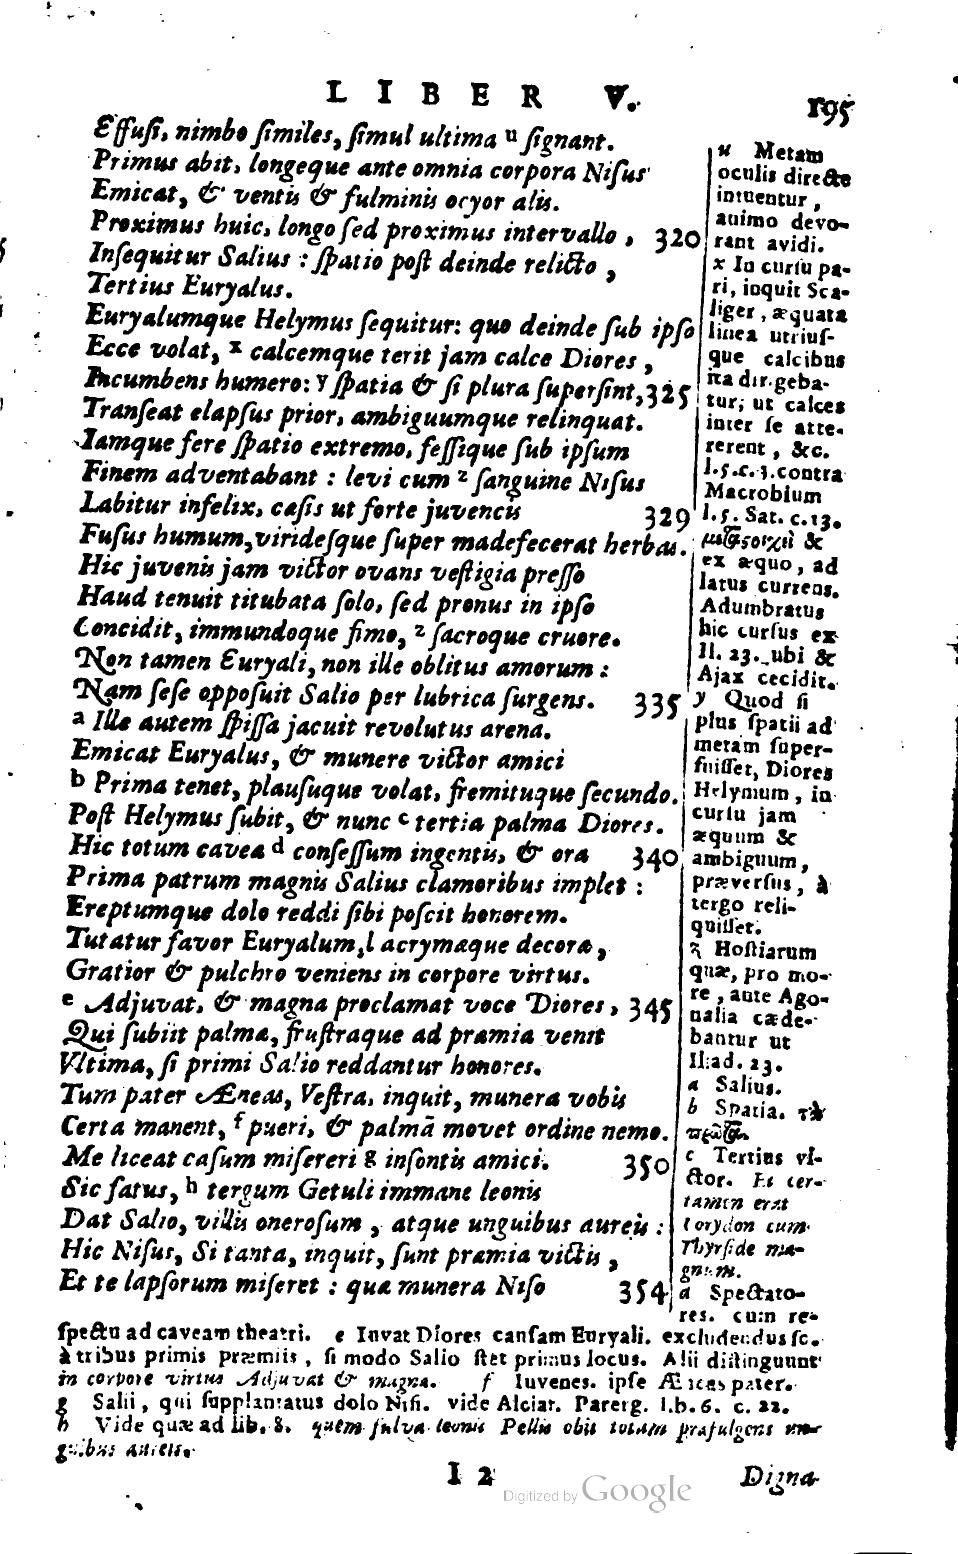 LIBER V. 195
Effuſi, nimbo ſimiles, ſimul ultima u ſignant.
Primus abit, longeque ante omnia corpora Niſus
Emicat, & ventis & fulminis ocyor alis.
Proximus huic, longo ſed proximus intervallo, 320
Inſequitur Salius : ſpatio poſt deinde relicto,
Tertius Euryalus.
Euryalumque Helymus ſequitur: quo deinde ſub ipſo
Ecce volat, x calcemque terit jam calce Diores,
Incumbens humero: y ſpatia & ſi plura ſuperſint, 325
Tranſeat elapſus prior, ambiguumque relinquat.
Iamque fere ſpatio extremo, feſſique ſub ipſum
Finem adventabant : levi cum z ſanguine Niſus
Labitur infelix, caſis ut forte juvencis 329
Fuſus humum, virideſque ſuper madefecerat herbas.
Hic juvenis jam victor ovans veſtigia preſſo
Haud tenuit titubata ſolo, ſed pronus in ipſo
Concidit, immundoque fimo, z ſacroque cruore.
Non tamen Euryali, non ille oblitus amorum :
Nam ſeſe oppoſuit Salio per lubrica ſurgens. 335
a Ille autem ſpiſſa jacuit revolutus arena.
Emicat Euryalus, & munere victor amici
b Prima tenet, plauſuque volat, fremituque ſecundo.
Poſt Helymus ſubit, & nunc c tertia palma Diores.
Hic totum cavea d conſeſſum ingentis, & ora 340
Prima patrum magnis Salius clamoribus implet :
Ereptumque dolo reddi ſibi poſcit honorem.
Tutatur favor Euryalum,l acrymæque decoræ,
Gratior & pulchro veniens in corpore virtus.
e Adjuvat, & magna proclamat voce Diores, 345
Qui ſubiit palmæ, fruſtraque ad præmia venit
Vltima, ſi primi Salio reddantur honores.
Tum pater Æneas, Veſtra, inquit, munera vobis
Certa manent, f pueri, & palmā movet ordine nemo.
Me liceat caſum miſereri g inſontis amici. 350
Sic fatus, h tergum Getuli immane leonis
Dat Salio, villis oneroſum, atque unguibus aureis :
Hic Niſus, Si tanta, inquit, ſunt præmia victis,
Et te lapſorum miſeret : quæ munera Niſo 354
u Metam
oculis directe
intuentur,
animo devo-
rant avidi.
x In curſu pa-
ri, inquit Sca-
liger, æquata
linea utriuſ-
que calcibus
ita dirigeba-
tur; ut calces
inter ſe atte-
rerent, &c.
l.5.c.3.contra
Macrobium
l.5. Sat. c.13.
&
ex æquo, ad
latus currens.
Adumbratus
hic curſus ex
Il. 23. ubi &
Ajax cecidit.
y Quod ſi
plus ſpatii ad
metam ſuper-
fuiſſet, Diores
Helymum, in
curſu jam
æquum &
ambiguum,
præverſus, à
tergo reli-
quiſſet.
z Hoſtiarum
quæ, pro mo-
re, ante Ago-
nalia cæde-
bantur ut
Iliad. 23.
a Salius.
b Spatia. τὰ
πρῶτα.
c Tertius vi-
ctor. Et cer-
tamen erat
Corydon cum
Thyrſide ma-
gnum.
d Spectato-
res. cum re-
ſpectu ad caveam theatri. e Iuvat Diores cauſam Euryali. excludendus ſc.
à tribus primis præmiis, ſi modo Salio ſtet primus locus. Alii diſtinguunt
in corpore virtus Adjuvat & magna. f Iuvenes. ipſe Æneas pater.
g Salii, qui ſupplantatus dolo Niſi. vide Alciat. Parerg. lib. 6. c. 22.
h Vide quæ ad lib. 8. quem fulva leonis Pellis obit totum præfulgens un-
guibus aureis.
I 2 Digna
Digitized by Google